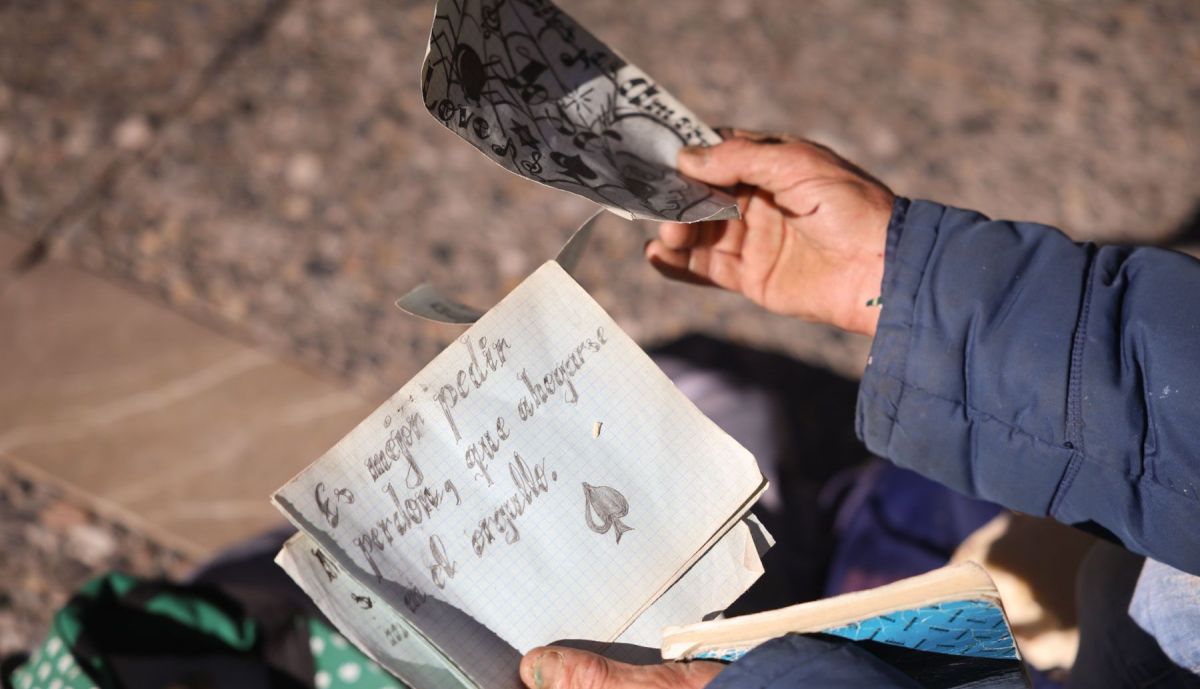 Love
Es mejor pedir
perdon, que ahogarse
en el orgullo.